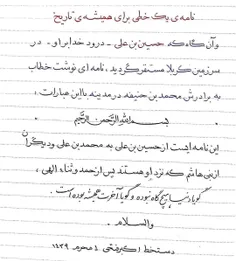 نامه‌ی یک خطی برای همیشه‌ی تاریخ
وآن گاه که حسین بن علی - درود خدا بر او - در
سرزمین کربلا مستقر گردید، نامه ای نوشت خطاب
به برادرش محمد بن حنیفه در مدینه با این عبارات :
بسم الله الرحمن الرحیم
این نامه ایست از حسین بن علی به محمد بن علی و دیگران
از بنی هاشم که نزد او هستند پس از حمد و ثناء الهی ،
گویا دنیا هیچ گاه نبوده و گویا آخرت همیشه بوده است .
والسلام .
دستخط ۴ محرم ۱۴۳۹